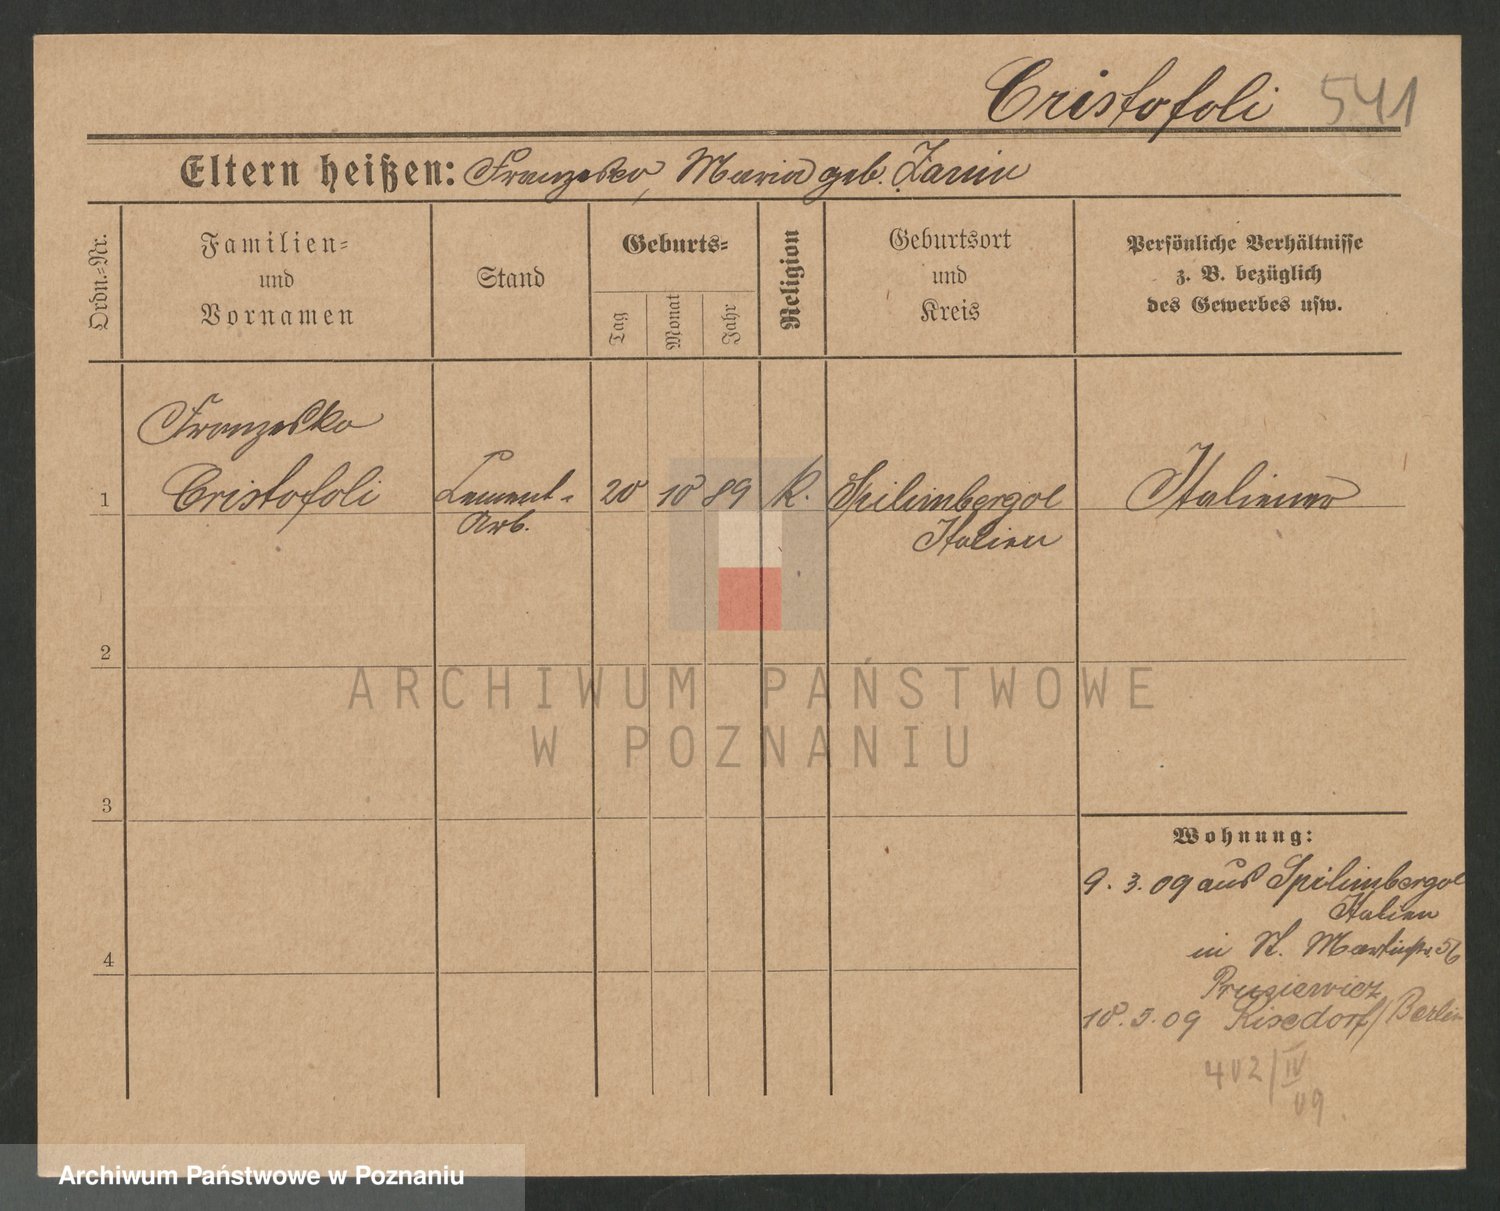 Cristofoli 541
Eltern heißen: Franzesko, Maria geb. Zanin
Ordn.-Nr.
Familien-
und
Vornamen
Stand
Geburts-
Tag
Monat
Jahr
Religion
Geburtsort
und
Kreis
Persönliche Verhältnisse
z. B. bezüglich
des Gewerbes usw.
Franzesko
1 Cristofoli Cement- 20 10 89 K. Spilimbergol Italiener
Arb. Italien
2
ARCHIWUM PAŃSTWOWE
W POZNANIU
3
Wohnung:
9. 3. 09 aus Spilimbergol
Italien
in St. Martinstr. 56
4
Prusiewicz
10. 5. 09 Rixdorf/Berlin
402/IV
09
Archiwum Państwowe w Poznaniu